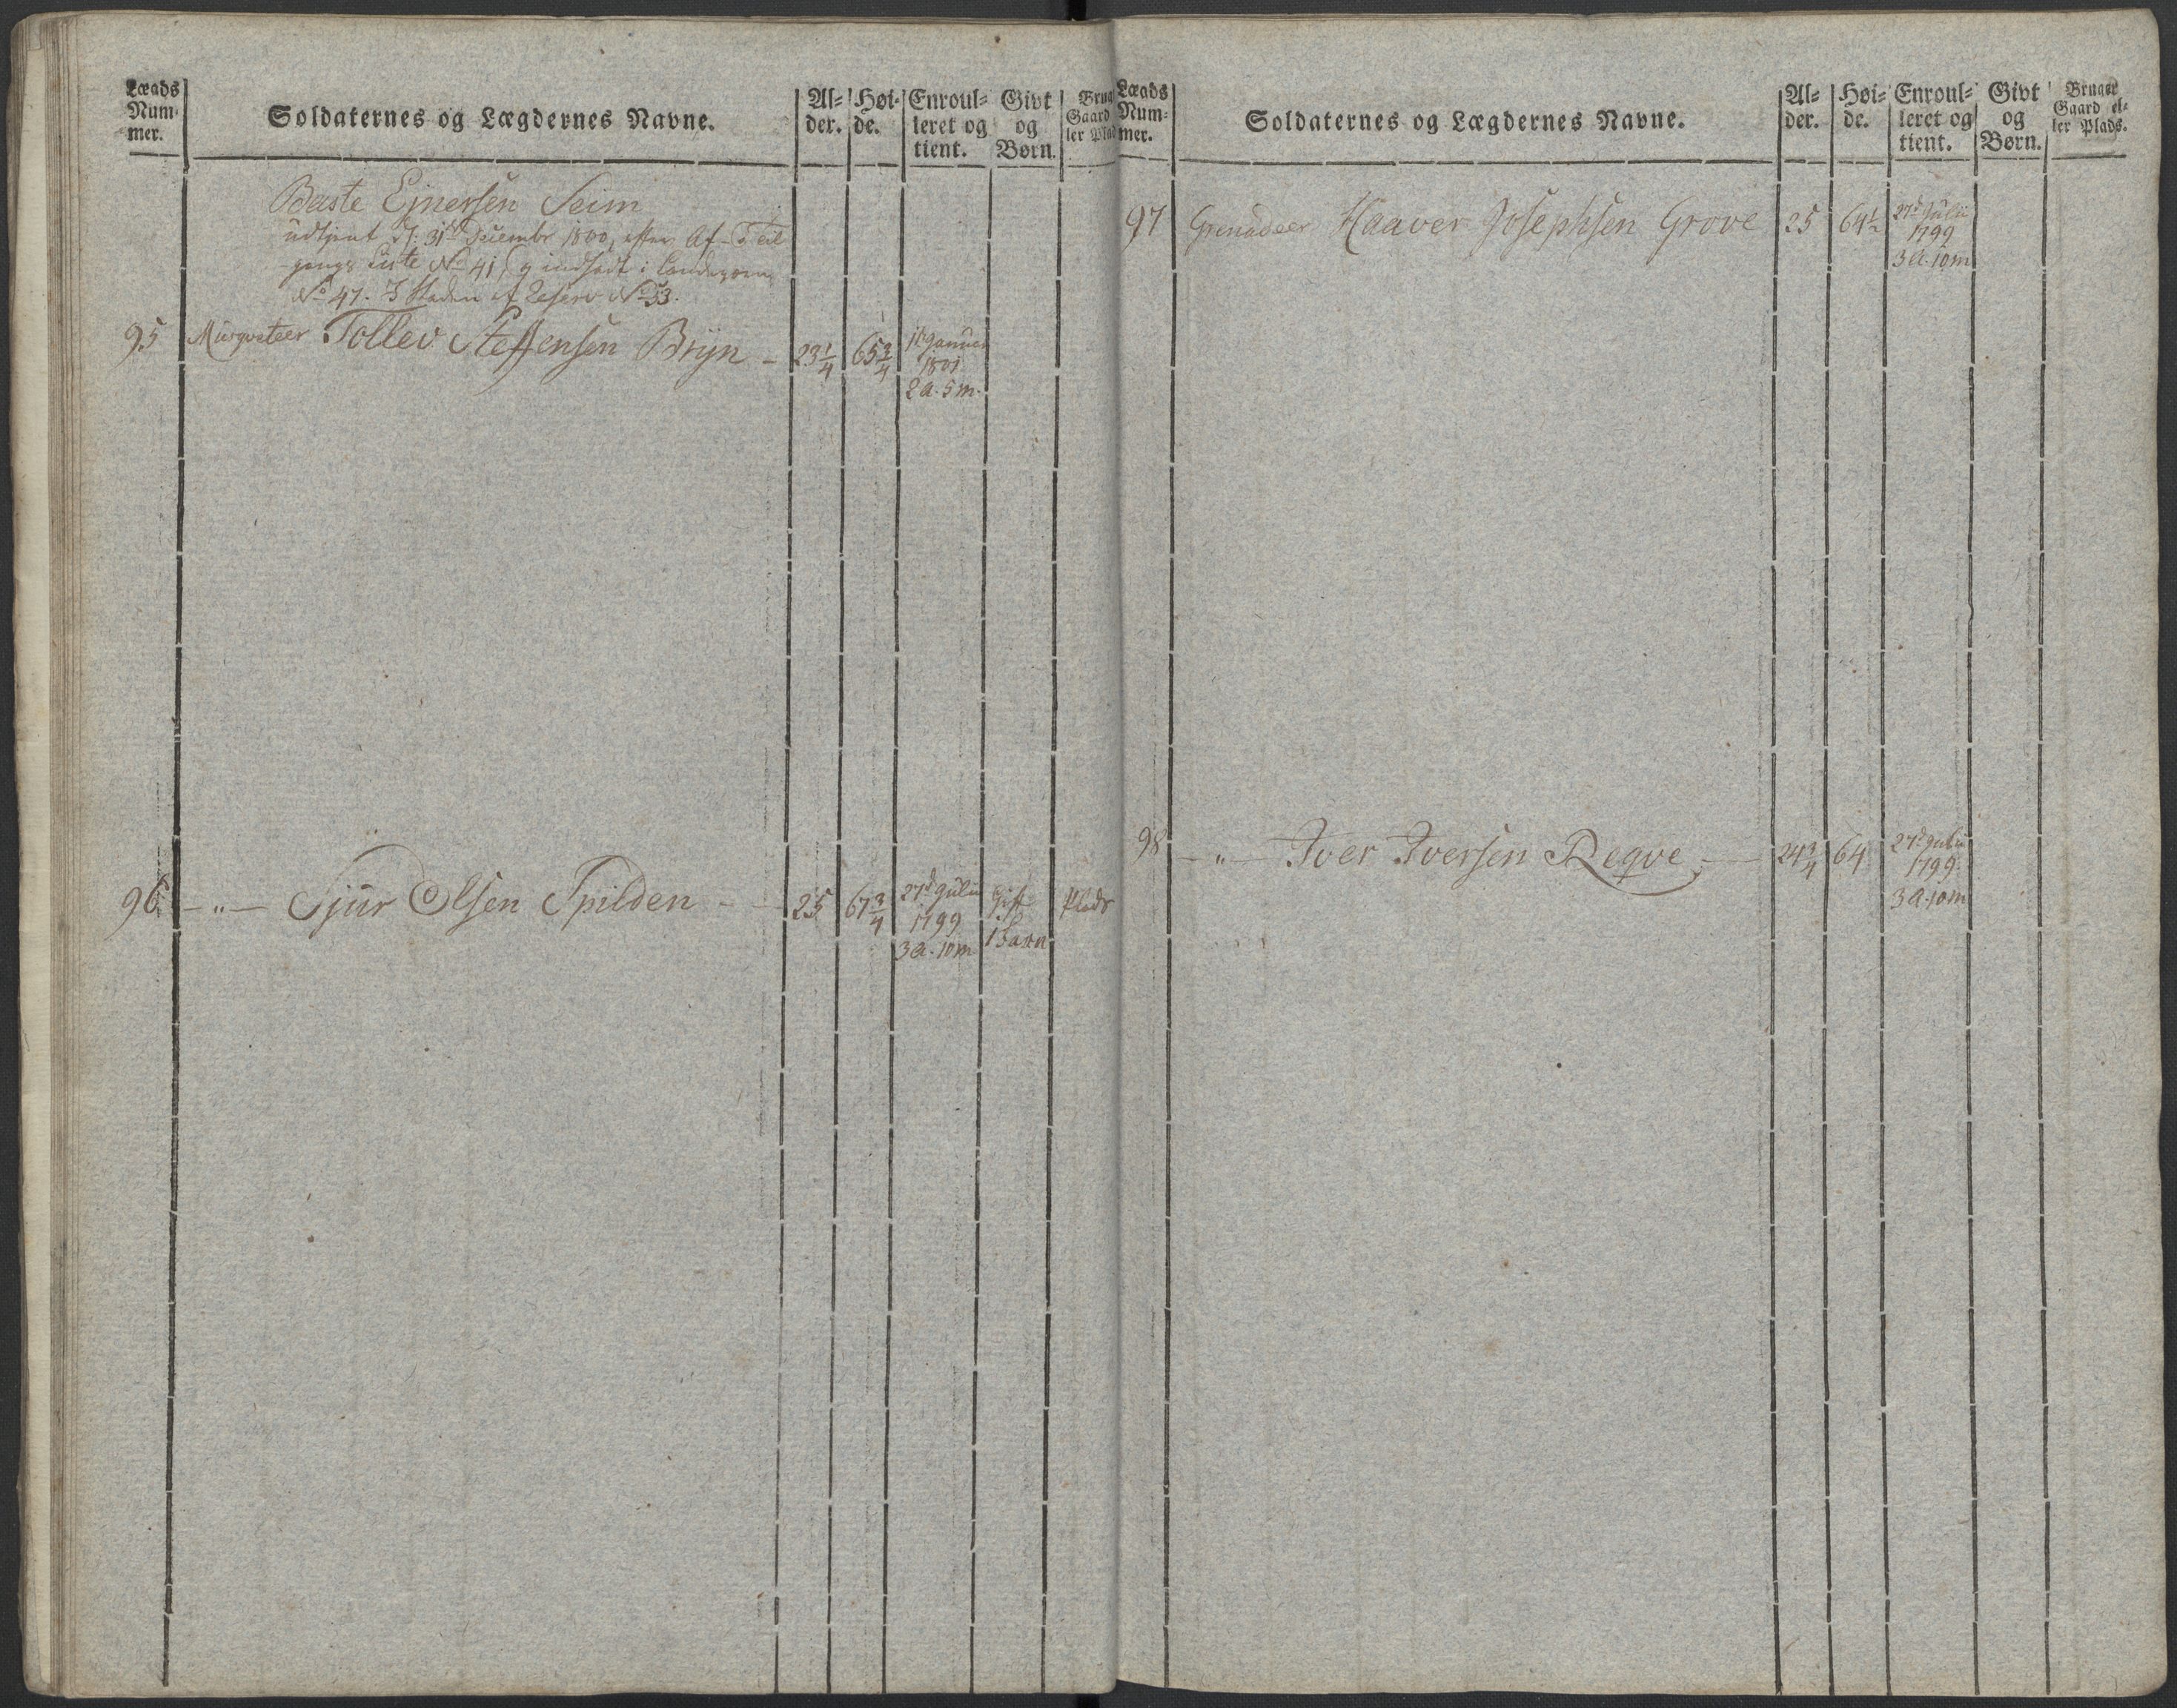 Læads Num- mer.
Soldaternes og Lægdernes Navne.
Al- der.
Høi- de.
Enroul- leret og tient.
Givt og Børn.
Brug Gaard ler Plad
Baste Ejnersen Seim
udtjent d: 31te Decembr 1800, efter Af- og Til
gangs Liste No 41, og indsadt i Landeværn
No 47. I Staden af Reserv No 53.
95 Musqveteer Tollev Steffensen Bryn - 23 1/4 65 3/4 1te Januar 1801 2 a. 5 m.
96 - " - Sjur Olsen Spilden - - 25 67 3/4 27d Julii 1799 3 a. 10 m Gift 1 barn Plads
Læads Num- mer.
Soldaternes og Lægdernes Navne.
Al- der.
Høi- de.
Enroul- leret og tient.
Givt og Børn.
Bruger Gaard el- ler Plads.
97 Grenadeer Haaver Josephsen Grove 25 64 1/2 27d Julii 1799 3 a. 10 m
98 - " - Iver Iversen Reqve - 24 3/4 64 27d Julii 1799 3 a. 10 m